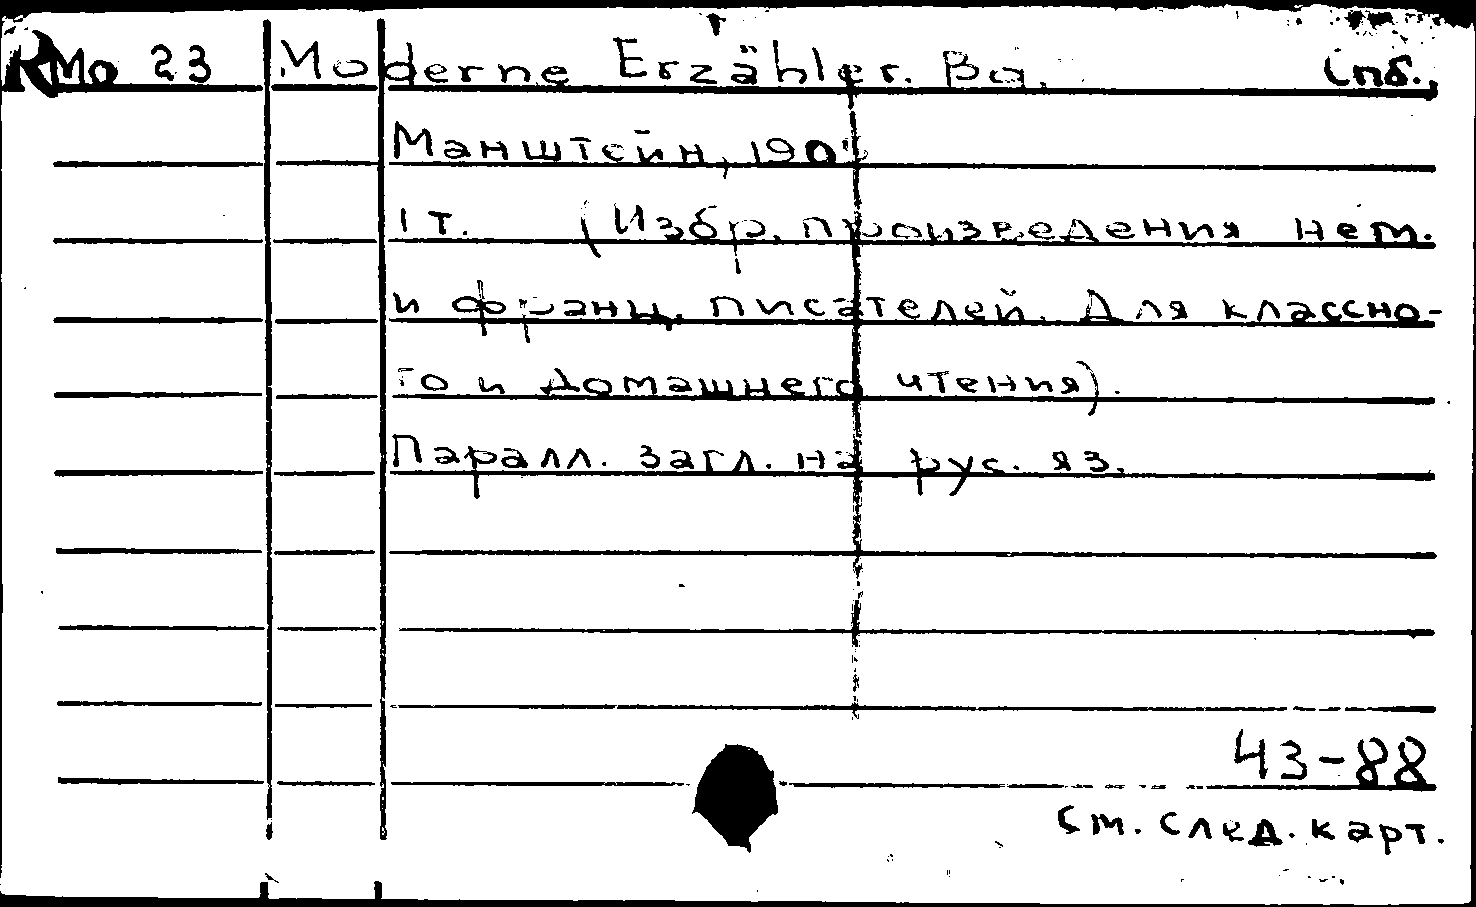 RMo 23 Moderne Erzähler. Bd. Спб.,
Манштейн,
1 т. (Избр. произведения нем.
и франц. писателей. Для классно-
го и домашнего чтения).
Паралл. загл. на рус. яз.
43-88
См. след. карт.